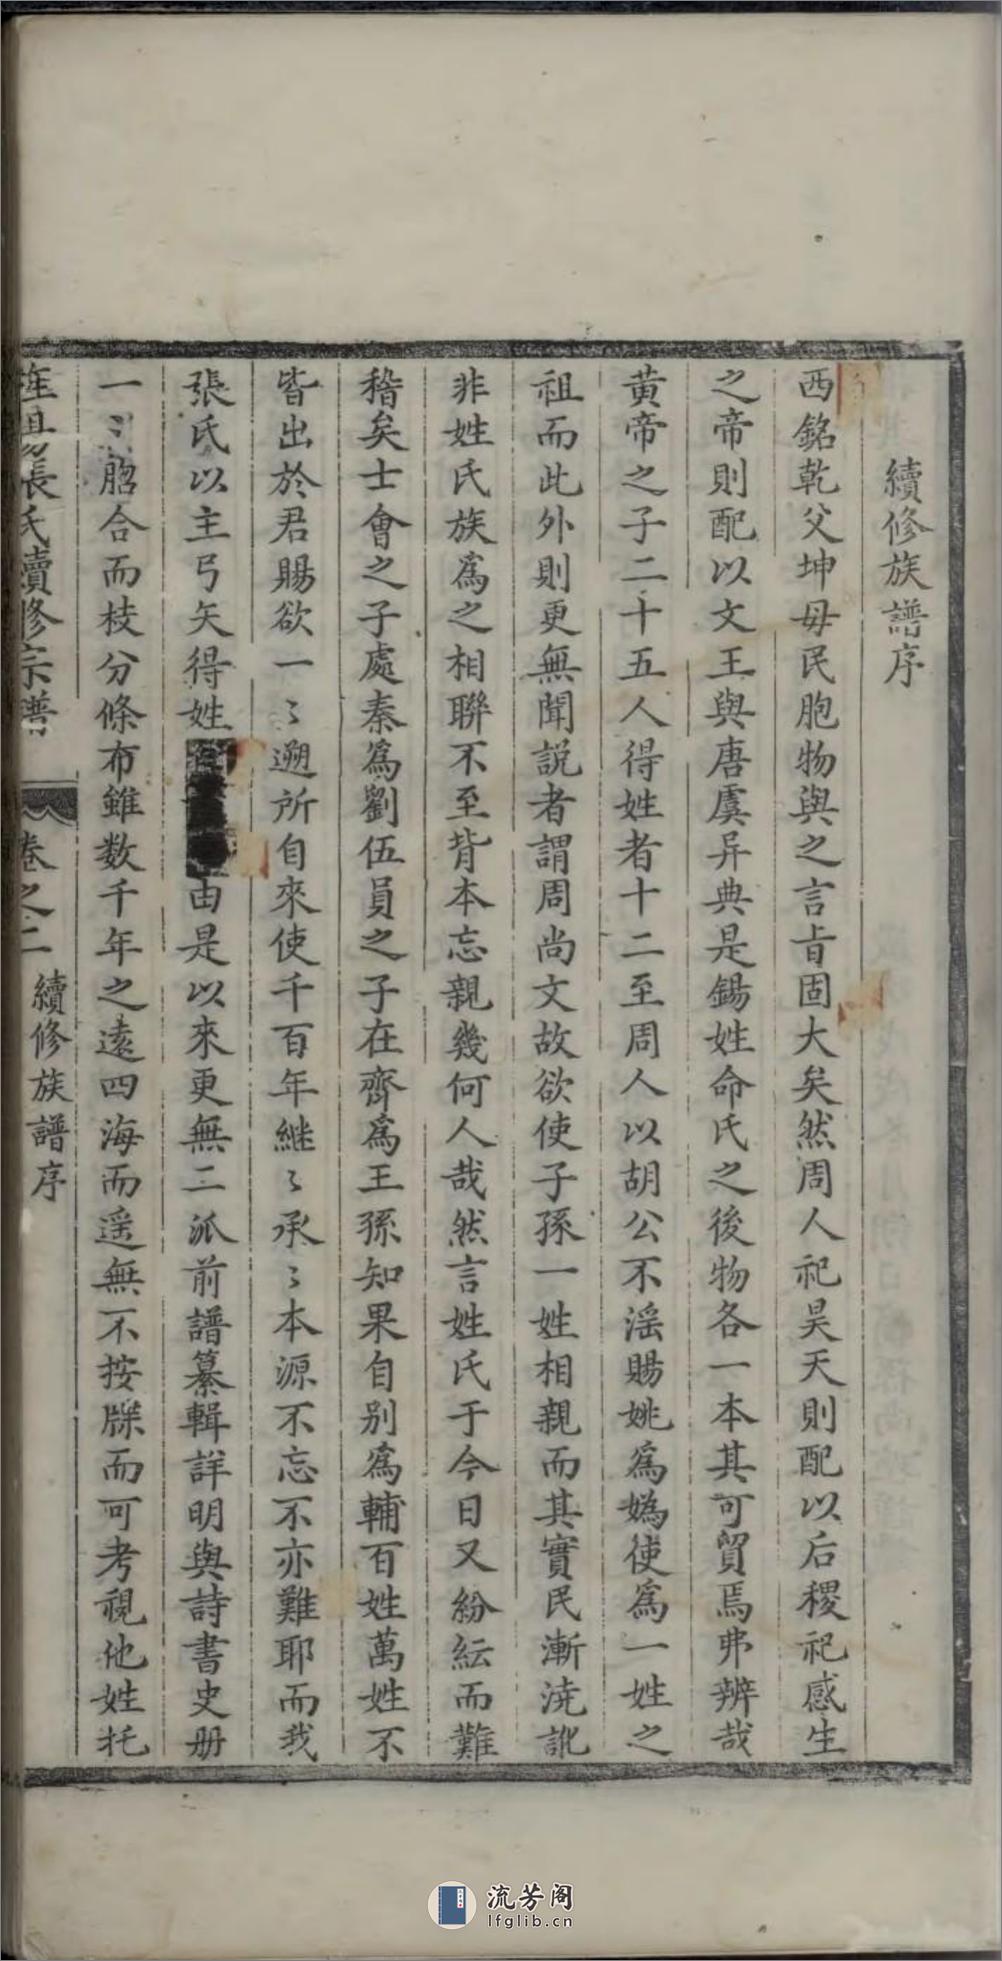 續修族譜序
西銘乾父坤母民胞物與之言旨固大矣然周人祀昊天則配以后稷祀感生
之帝則配以文王與唐虞异典是錫姓命氏之後物各一本其可貿焉弗辨哉
黄帝之子二十五人得姓者十二至周人以胡公不滛賜姚爲媯使爲一姓之
祖而此外則更無聞説者謂周尚文故欲使子孫一姓相親而其實民漸澆訛
非姓氏族爲之相聯不至背本忘親幾何人哉然言姓氏于今日又紛紜而難
稽矣士會之子處秦爲劉伍員之子在齊爲王孫知果自别爲輔百姓萬姓不
皆出於君賜欲一〻遡所自來使千百年継〻承〻本源不忘不亦難耶而我
張氏以主弓矢得姓由是以來更無二派前譜纂輯詳明與詩書史册
一〻脗合而枝分條布雖数千年之遠四海而遥無不按牒而可考視他姓托
張氏續修宗譜 卷之二 續修族譜序
流芳阁
lfglib.cn